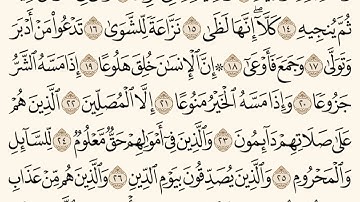 ثُمَّ يُنجِيهِ ١٤ كَلَّآ ۖ إِنَّهَا لَظَىٰ ١٥ نَزَّاعَةً لِّلشَّوَىٰ ١٦ تَدْعُوا۟ مَنْ أَدْبَرَ
وَتَوَلَّىٰ ١٧ وَجَمَعَ فَأَوْعَىٰٓ ١٨ ۞ إِنَّ ٱلْإِنسَٰنَ خُلِقَ هَلُوعًا ١٩ إِذَا مَسَّهُ ٱلشَّرُّ
جَزُوعًا ٢٠ وَإِذَا مَسَّهُ ٱلْخَيْرُ مَنُوعًا ٢١ إِلَّا ٱلْمُصَلِّينَ ٢٢ ٱلَّذِينَ هُمْ
عَلَىٰ صَلَاتِهِمْ دَآئِمُونَ ٢٣ وَٱلَّذِينَ فِىٓ أَمْوَٰلِهِمْ حَقٌّ مَّعْلُومٌ ٢٤ لِّلسَّآئِلِ
وَٱلْمَحْرُومِ ٢٥ وَٱلَّذِينَ يُصَدِّقُونَ بِيَوْمِ ٱلدِّينِ ٢٦ وَٱلَّذِينَ هُم مِّنْ عَذَابِ